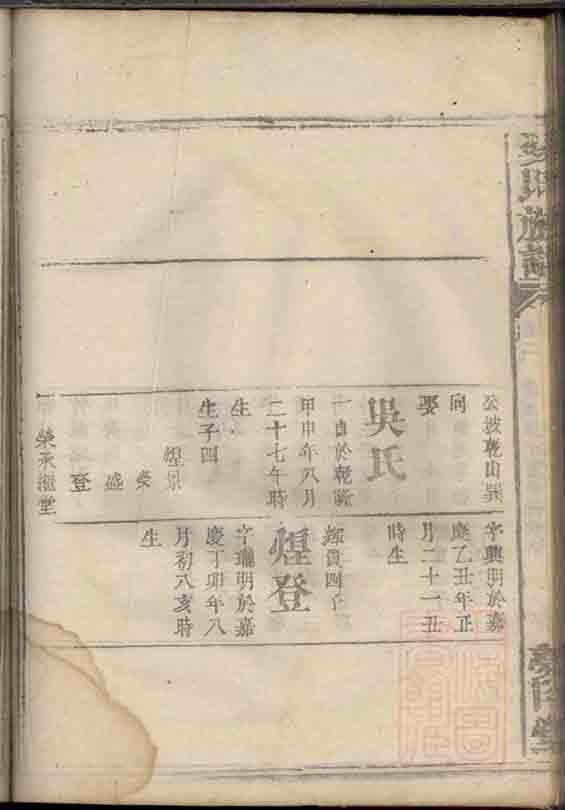 族譜
公坡乾山巽
向
娶
吳氏
甲申年八月
二十七午時
生
生子四
煌景
榮
盛
登
榮承
字興明於嘉
慶乙丑年正
月二十一丑
時生
輝貴四子
煌登
字瓏明於嘉
慶丁卯年八
月初八亥時
生